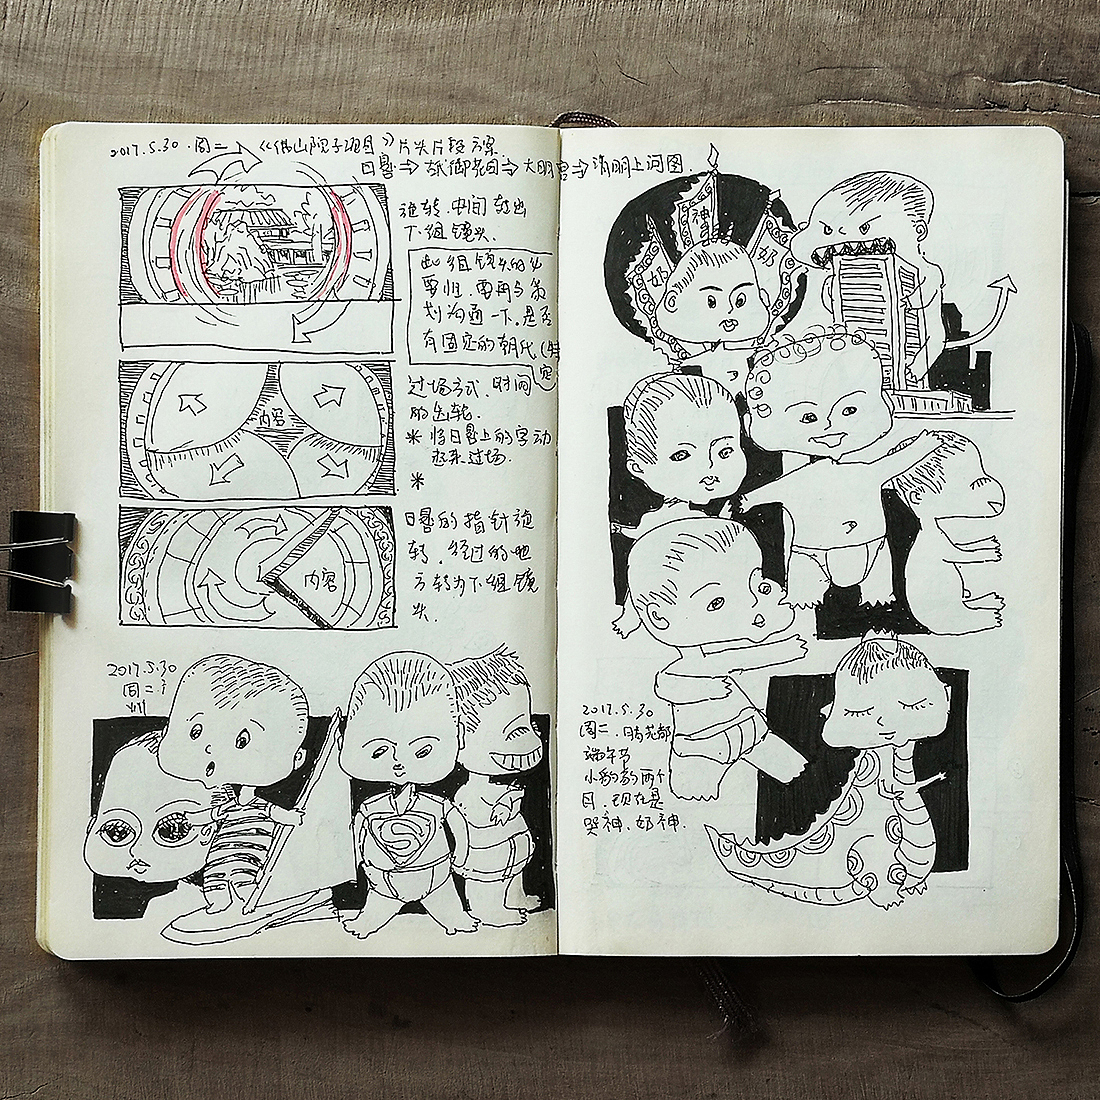 2017.5.30.周二 《佛山院子项目》片头片段方案
日晷⇒纸御花园⇒大明宫⇒清明上河图
旋转.中间转出
下组镜头.
此组镜头的必
要性.需再与策
划沟通一下.是否
有固定的朝代(特
定)
过场方式.时间
的齿轮.
内容
* 将日晷上的字动
起来过场.
*
日晷的指针旋
转.经过的地
方转为下组镜
头.
内容
2017.5.30
周二
神
奶
奶
2017.5.30
周二.成都
端午节
小豹豹两个
月.现在是
哭神.奶神.